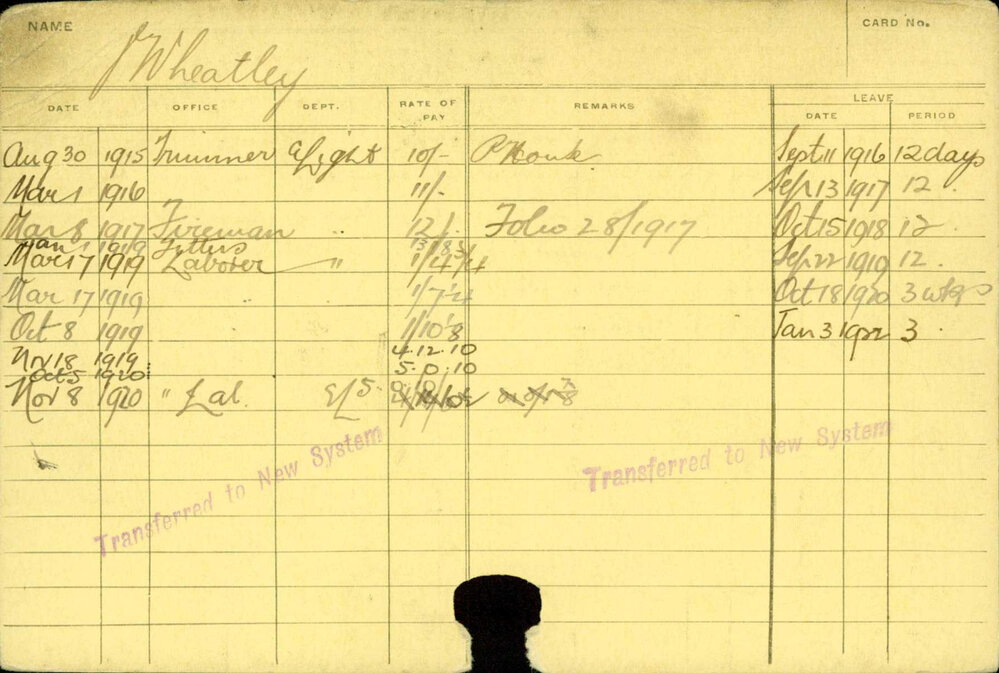 NAME
CARD No.
J Wheatley
LEAVE
DATE OFFICE DEPT. RATE OF PAY REMARKS DATE PERIOD
Aug 30 1915 Trimmer E Light 10/- Sept 11 1916 12 days
Mar 1 1916 11/- Sep 13 1917 12
Mar 8 1917 Fireman " 12/- Folio 28/1917 Oct 15 1918 12
Jan 1 1919 Fitters
Mar 17 1919 Laborer " Sep 22 1919 12
Mar 17 1919 1/7 Oct 18 1920 3 wks
Oct 8 1919 1/10 Jan 3 3
Nov 18 1919 4.12.10
Oct 5 1920 5.0.10
Nov 8 1920 " Lab.
Transferred to New System
Transferred to New System